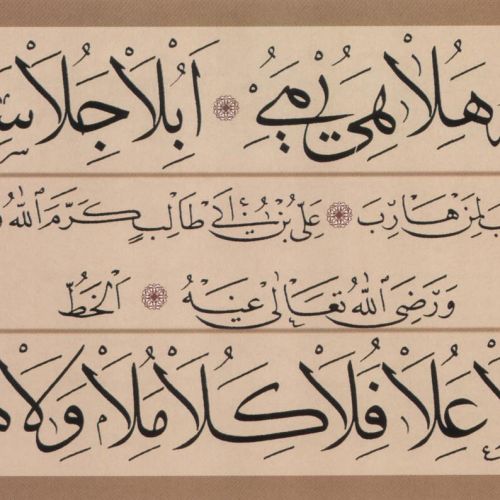 هَلَا هِيَ يَمِيْ ۞ اَبْلَا جُلَا
لِمَنْ هَارِبَ ۞ عَلِيُّ بْنُ أَبِي طَالِبٍ كَرَّمَ اللهُ
وَرَضِيَ اللهُ تَعَالَى عَنْهُ ۞ اَلْخَطُّ
عُلَا فُلَا كُلَا مُلَا وَلَا